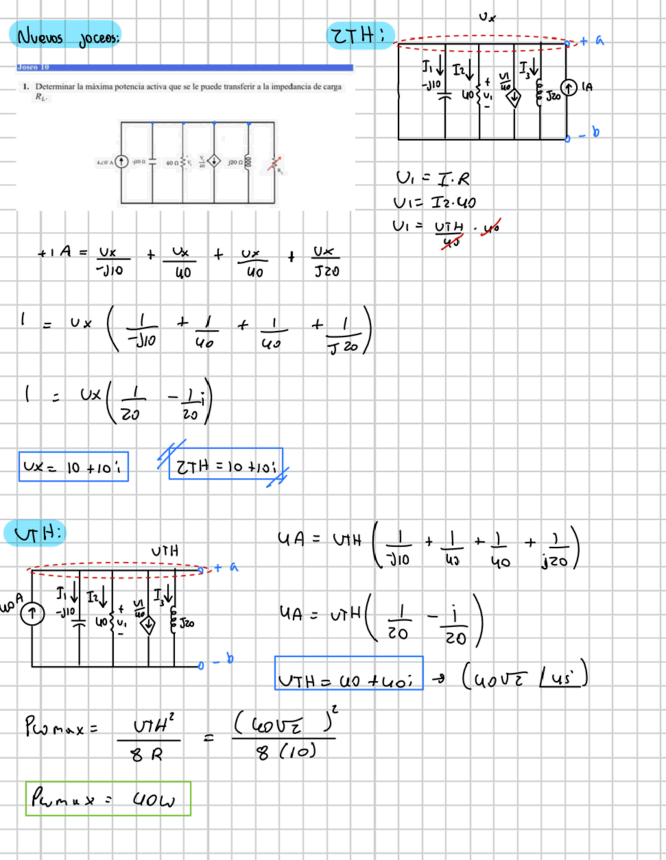 Nuevos joceos:
Joseo 10
1. Determinar la máxima potencia activa que se le puede transferir a la impedancia de carga
R_L.
4∠0° A -j10 Ω 40 Ω j20 Ω
ZTH:
Ux
+ a
I₁↓ I₂↓ V1/40 I₃↓
-J10 40 + U₁ - J20 1A
- b
U₁ = I·R
U₁ = I₂·40
U₁ = UTH/40 · 40
+1 A = Ux/-J10 + Ux/40 + Ux/40 + Ux/J20
1 = Ux (1/-J10 + 1/40 + 1/40 + 1/J20)
1 = Ux (1/20 - 1/20 i)
Ux = 10 + 10i
ZTH = 10 + 10i
UTH:
UTH
+ a
I₁↓ I₂↓ V1/40 I₃↓
-J10 40 + U₁ - J20
- b
4A = UTH (1/-J10 + 1/40 + 1/40 + 1/j20)
4A = UTH (1/20 - i/20)
UTH = 40 + 40i → (40√2 ∠45)
Pωmax = UTH²/8R = (40√2)²/8(10)
Pωmax = 40ω